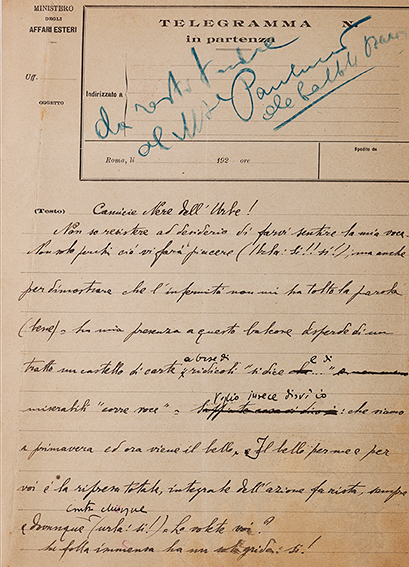 MINISTERO
DEGLI
AFFARI ESTERI
TELEGRAMMA N.
in partenza
Uff.
OGGETTO
Indirizzato a
da restituire
al
Roma, li 192 ore
Spedito da
(Testo) Camicie Nere dell'Urbe!
Non so resistere al desiderio di farvi sentire la mia voce
Non solo perché ciò vi farà piacere (Urla: si!! si!), ma anche
per dimostrare che l'infermità non mi ha tolto la parola
(bene) = La mia presenza a questo balcone disperde di un
tratto un castello di carte a base di ridicoli "si dice" e di
miserabili "corre voce" = Voglio invece dirvi io: che siamo
a primavera ed ora viene il bello. = Il bello per me e per
voi è la ripresa totale, integrale dell'azione fascista, sempre
e dovunque contro chiunque (urla: si!) Lo volete voi?
La folla immensa ha un solo grido: si!